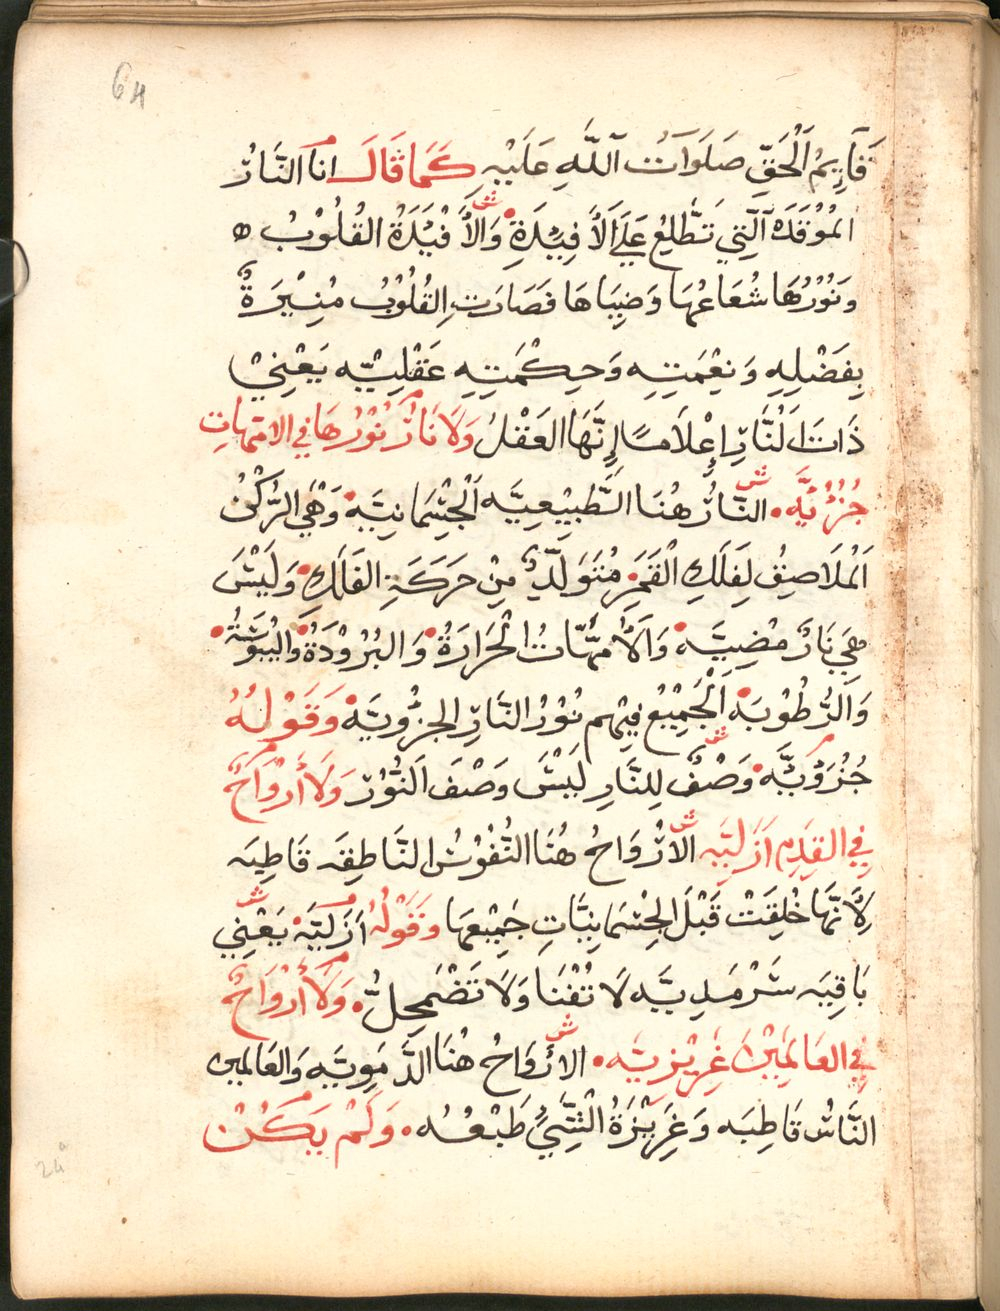 64
قَآيِمُ اَلْحَقِّ صَلَوَاتُ اَللّٰهِ عَلَيْهِ كَمَا قَالَ انا النَّارُ
المُوْقَدَه اَلَّتِي تَطَّلِعُ عَلَى اَلأَفِيْدَةِ ش وَالأَفْيَدَةُ القُلُوْبُ ه
وَنُوْرُهَا شُعَاعُهَا وَضِيَاهَا فَصَارَتِ القُلُوْبُ مُنِيْرَةً
بِفَضْلِهِ وَنِعْمَتِهِ وَحِكْمَتِهِ عَقْلِيّيه يَعْنِيْ
ذَاتَ اَلنَّارِ إِعْلَامًا إِنَّهَا العَقْلُ وَلَا نَارٌ نُوْرُهَا فِي الامّهاتِ
جُزْئيَّه ش النّارُ هُنَا الطَّبِيْعِيَّه اَلْجِسْمَانِيَّه وَهْيَ الرُّكْنُ
اَلْمُلَاصِقُ لِفَلَكِ الْقَمَرِ مُتَوَلِّدٌ مِنْ حَرَكَةِ الفَلَكِ وَلَيْسَ
هِيَ نَارٌ مُضِيَّه وَالأُمَّهَاتُ الْحَرَارَةُ وَالبُرُوْدَةُ وَاليُبُوْسَةُ
وَالرُّطُوْبَه اَلْجَمِيْعُ فِيْهِم نُوْرُ النَّارِ الجُزْويَّه وَقَوْلُهُ
جُزْوَيَّه ش وَصْفٌ لِلنَّارِ لَيْسَ وَصْفَ اَلنُّوْرِ وَلَا أَرْوَاحٌ
فِي القِدَمِ اَزَلِيَّه ش الاَرْوَاحُ هُنَا النُّفُوْسُ النَّاطِقَه قَاطِبَه
لِأَنَّهَا خُلِقَتْ قَبْلَ الجِسْمَانِيَّاتِ جَمِيْعَهَا وَقَوْلُهُ أَزَلِيَّة ش يَعْنِي
بَاقِيَه سَرْمَدِيَّه لَا تُفْنَا وَلَا تَضْمَحِلُّ وَلَا أَرْوَاحٌ
فِي العَالَمِيْنَ غَرِيْزِيَّه ش الاَرْوَاحُ هُنَا الدَّمَوِيَّه وَالعَالَمِين
النَّاسُ قَاطِبَه وَغَرِيْزَةُ الشَّيْءِ طَبْعُه وَلَمْ يَكُنْ